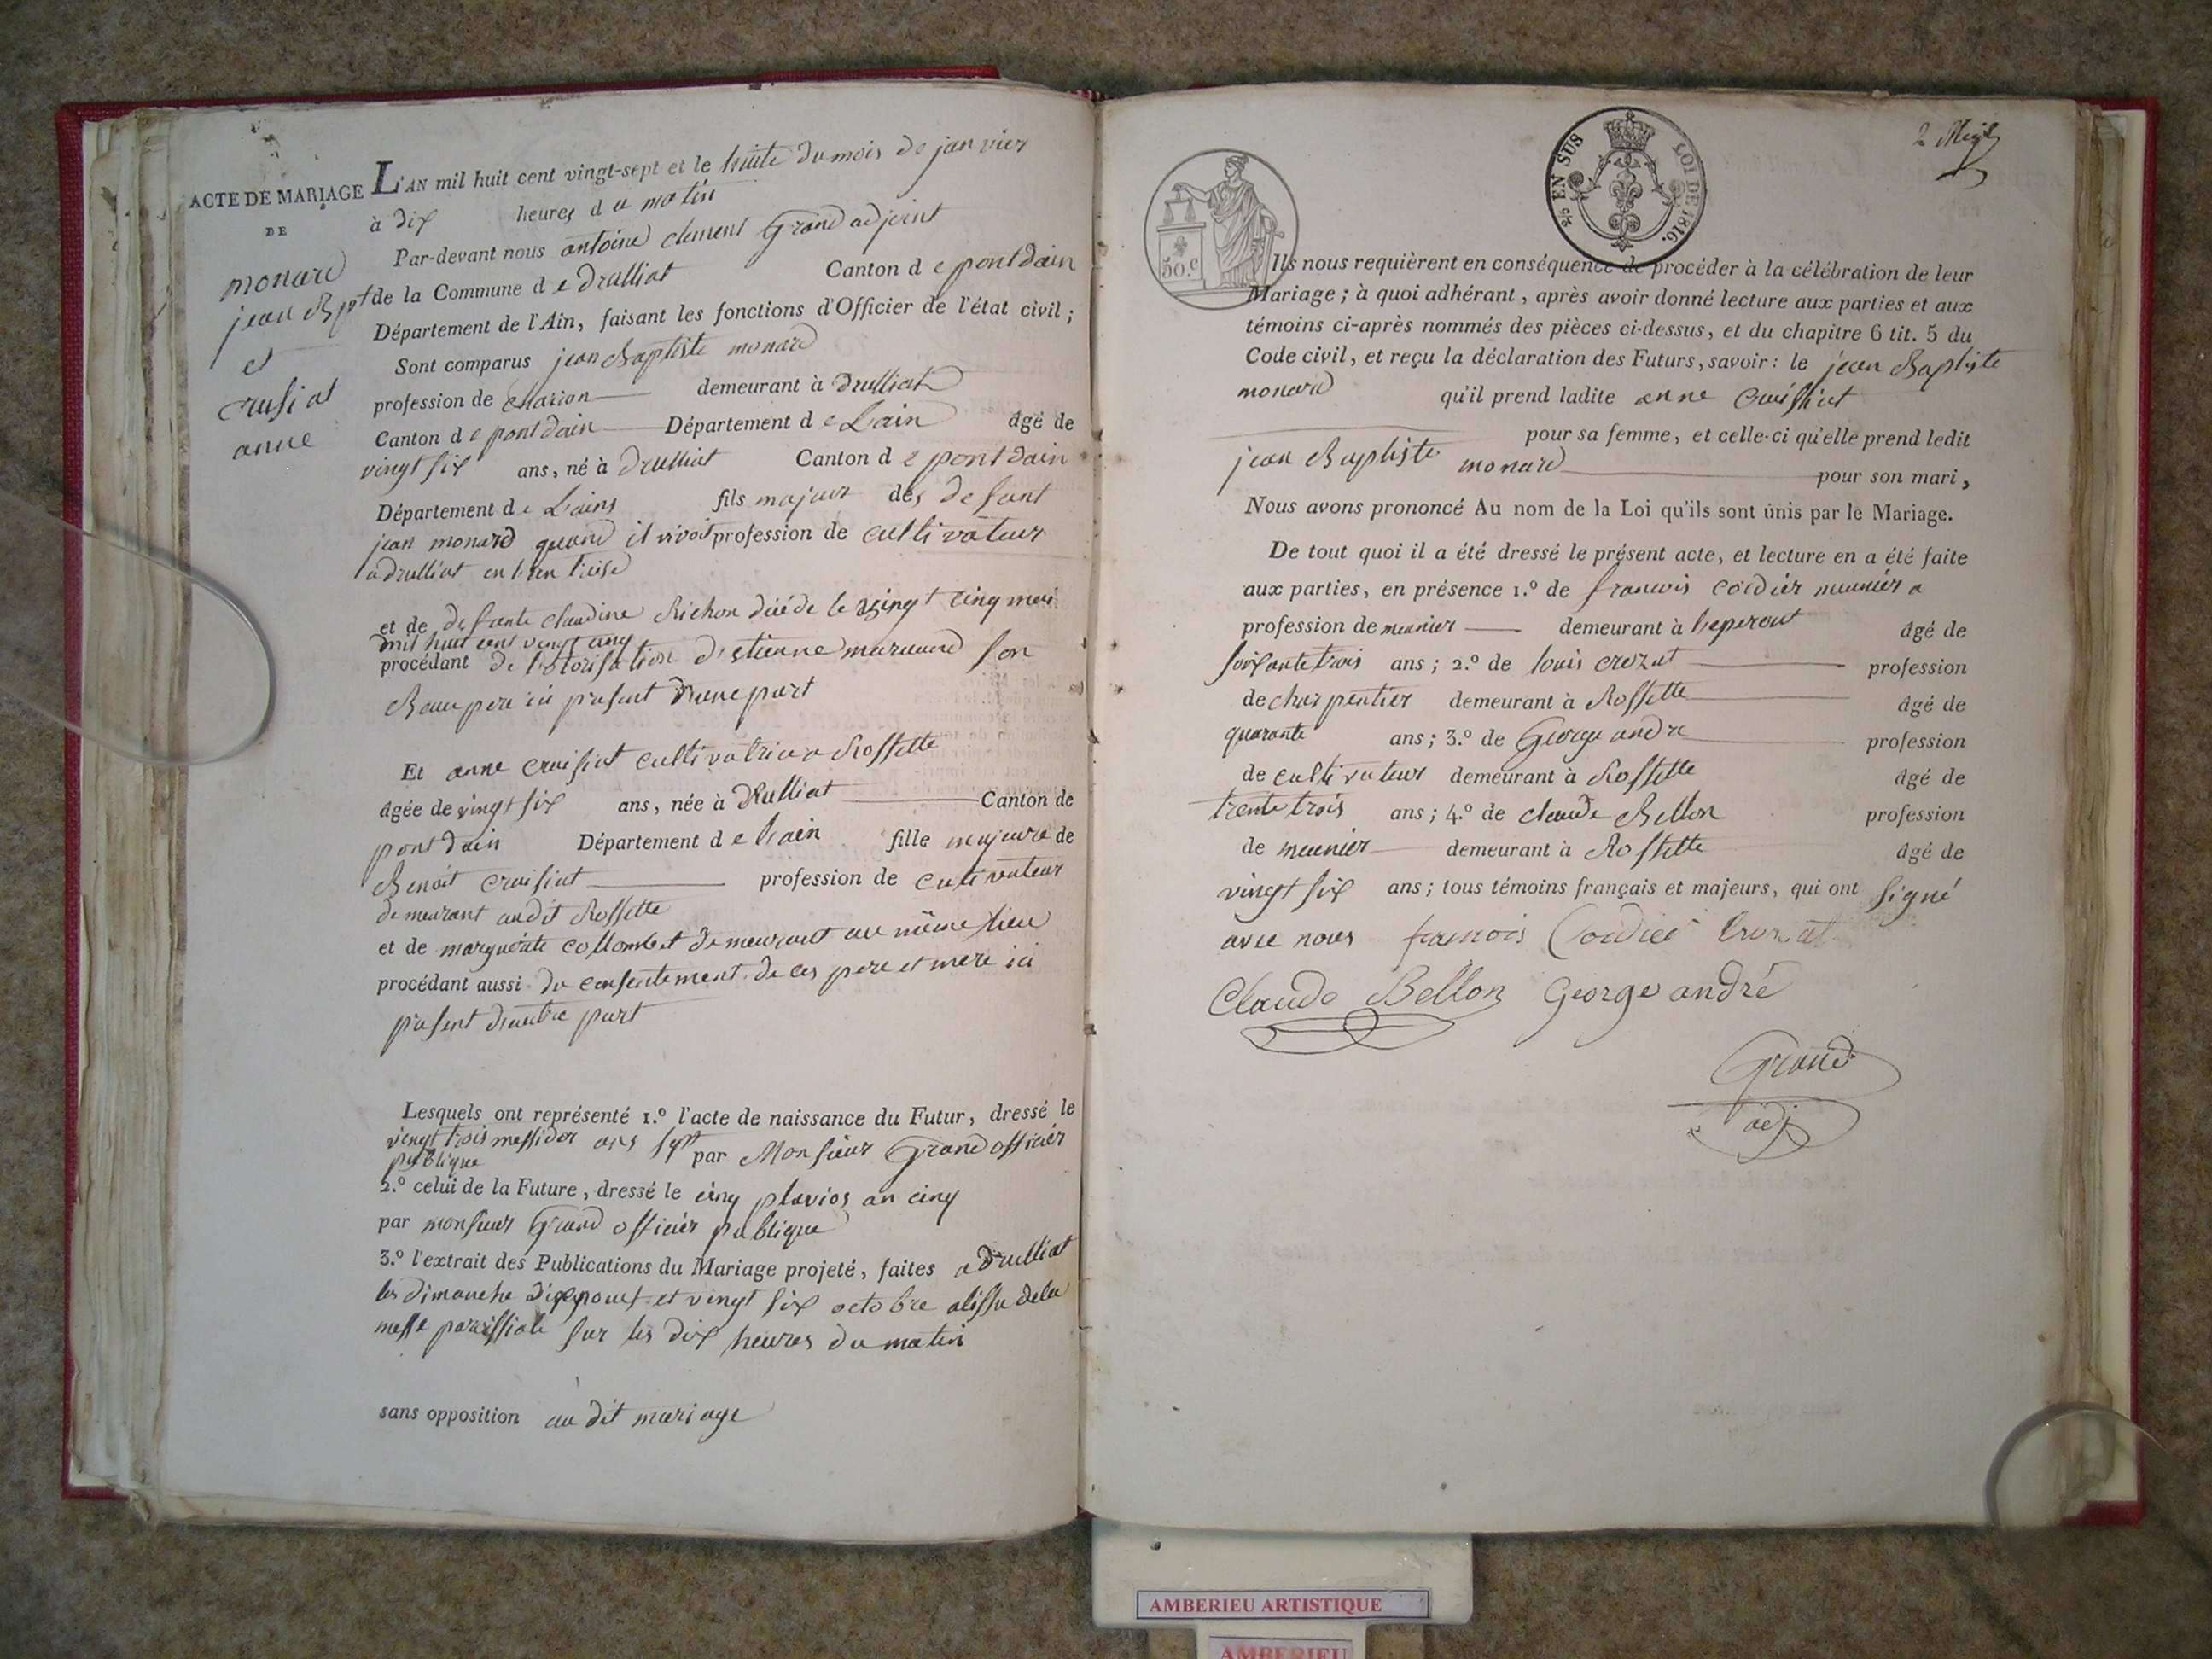 ACTE DE MARIAGE
DE
monard
jean Bpt
et
crusiat
anne
L'AN mil huit cent vingt-sept et le huite du mois de janvier
à dix heures du matin
Par-devant nous antoine clement Grand adjoint
de la Commune de Drulliat Canton de pontdain
Département de l'Ain, faisant les fonctions d'Officier de l'état civil;
Sont comparus jean Baptiste monard
profession de charion demeurant à Drulliat
Canton de pont dain Département de Lain âgé de
vingt six ans, né à Drulliat Canton de pont dain
Département de Lains fils majeur des defunt
jean monard quand il vivoit profession de cultivateur
a drulliat
et de defunte claudine Richon décéde le vingt cinq mai
mil huit cent vingt cinq
procédant de l'otorisation d'etienne maruand son
Beaupere ici present d'une part
Et anne cruisiat cultivatrice a Rossette
âgée de vingt six ans, née à Drulliat Canton de
pont dain Département de Lain fille majeure de
Benoit cruisiat profession de cultivateur
demeurant audit Rossette
et de marguerite collombet demeurant au même lieu
procédant aussi du consentement de ces pere et mere ici
present d'autre part
Lesquels ont représenté 1.º l'acte de naissance du Futur, dressé le
vingt trois messidor ans sept par Monsieur Grand officier
publique
2.º celui de la Future, dressé le cinq pluvios an cinq
par monsieur Grand officier publique
3.º l'extrait des Publications du Mariage projeté, faites a Drulliat
les dimanche dixneuf et vingt six octobre alissu dela
messe paroissiale sur les dix heures du matin
sans opposition au dit mariage
50.c
EN SUS LOI DE 1816.
Ils nous requièrent en conséquence de procéder à la célébration de leur
Mariage; à quoi adhérant, après avoir donné lecture aux parties et aux
témoins ci-après nommés des pièces ci-dessus, et du chapitre 6 tit. 5 du
Code civil, et reçu la déclaration des Futurs, savoir: le jean Baptiste
monard qu'il prend ladite anne Cruisiat
pour sa femme, et celle-ci qu'elle prend ledit
jean Baptiste monard pour son mari,
Nous avons prononcé Au nom de la Loi qu'ils sont unis par le Mariage.
De tout quoi il a été dressé le présent acte, et lecture en a été faite
aux parties, en présence 1.º de francois cordier meunier a
profession de meunier demeurant à âgé de
soixante trois ans; 2.º de louis crozat profession
de charpentier demeurant à Rossette âgé de
quarante ans; 3.º de George andre profession
de cultivateur demeurant à Rossette âgé de
trente trois ans; 4.º de claude Bellon profession
de meunier demeurant à Rossette âgé de
vingt six ans; tous témoins français et majeurs, qui ont signé
avec nous francois Cordier Crozat
Claude Bellon George andré
Grand
adj
AMBERIEU ARTISTIQUE
AMBERIEU